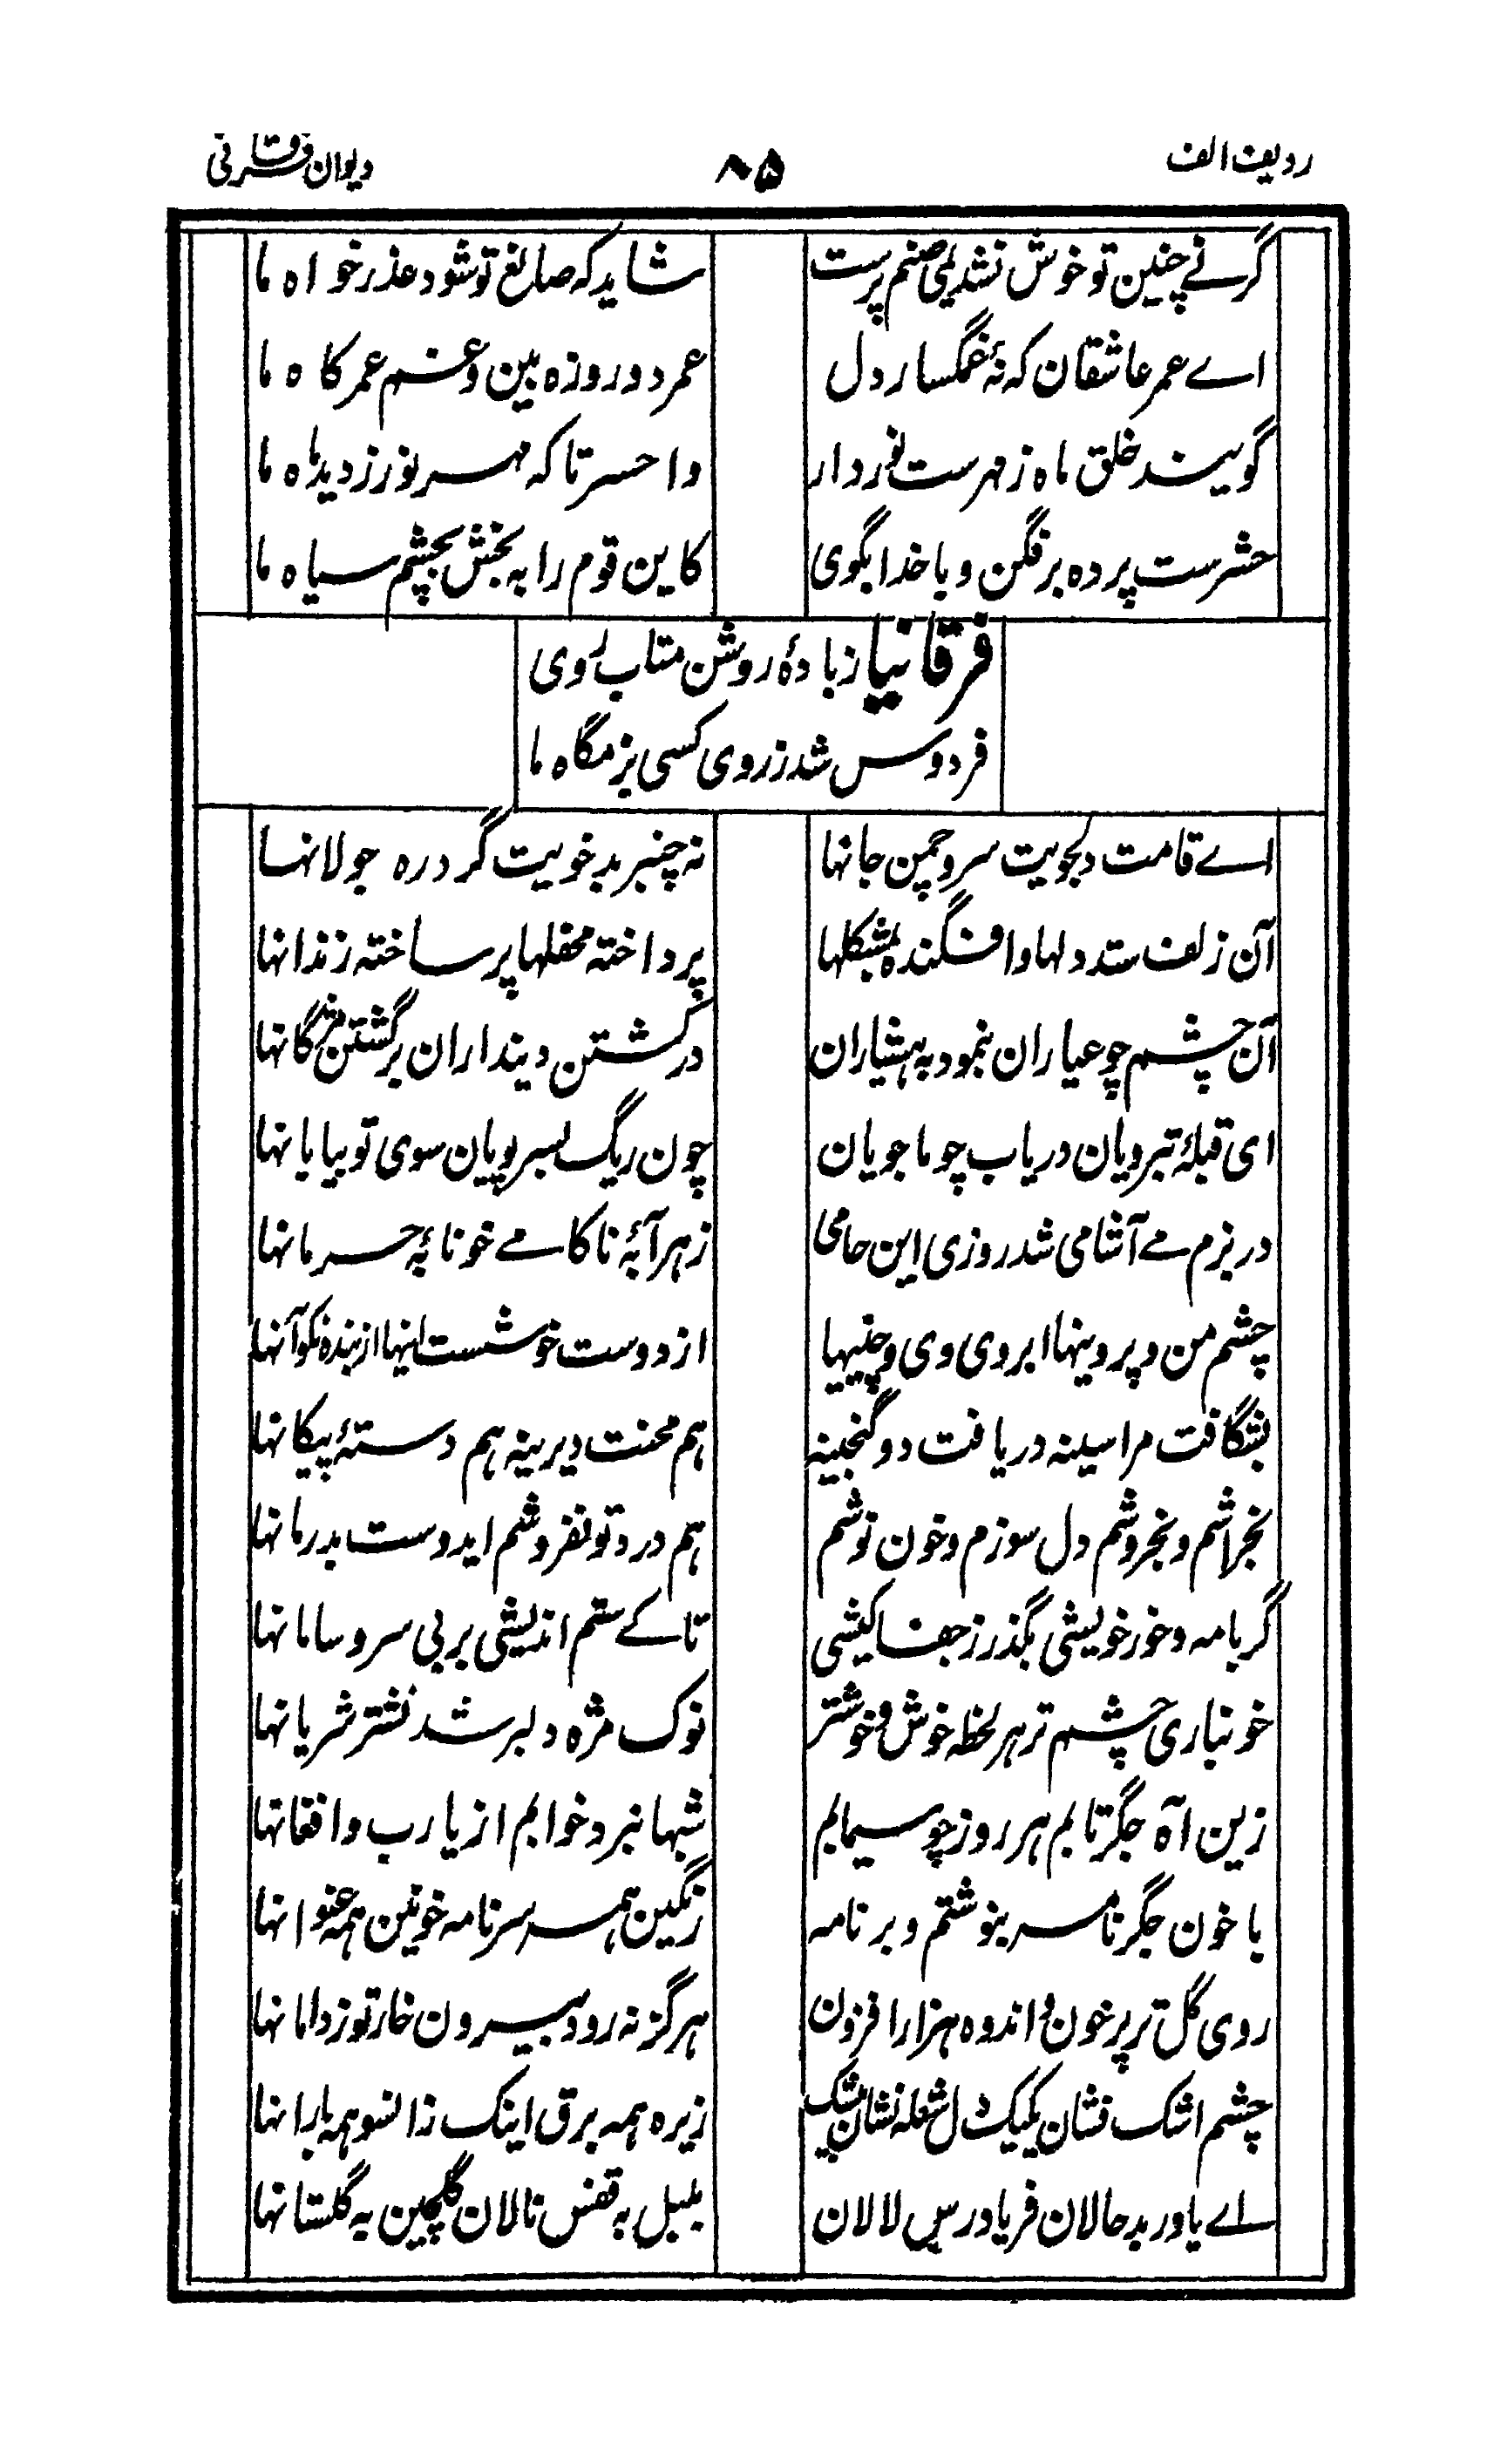 ردیف الف ۸۵ دیوان فرقانی
گر نے چنین تو خوش نشدیمی صنم پرست شاید که صانع تو شود عذر خواه ما
اے عمر عاشقان که نۀ غمگسار دل عمر دو روزه بین و غم عمر کاه ما
گویند خلق ماه ز مهرست نور دار وا حسرتا که مهر نورزد بماه ما
حشرست پرده برفگن و با خدا بگوی کاین قوم را به بخش بچشم سیاه ما
فرقانیا ز بادۀ روشن متاب روی
فردوس شد ز روی کسی بزمگاه ما
اے قامت دلجویت سرو چمن جانها نه چنبر بدخویت گرد ره جولانها
آن زلف ستد دلها وافگنده بمشکلها پرداخته محفلها پر ساخته زندانها
آن چشم چو عیاران بنمود به هشیاران در کشتن دینداران برگشتن مژگانها
ای قبلۀ تبرویان دریاب چو ما جویان چون ریگ بسر پویان سوی تو بیابانها
در بزم مے آشامی شد روزی این حامی زهرآبۀ ناکامے خونابۀ حرمانها
چشم من و پروینها ابروی وی و چینها از دوست خوشست اینها از بنده نکو آنها
بشگافت مرا سینه دریافت دو گنجینه هم محنت دیرینه هم دستۀ پیکانها
نخراشم و نخروشم دل سوزم و خون نوشم هم درد تو نفروشم ایدوست بدرمانها
گر با مه و خور خویشی بگذر ز جفا کیشی تا کے ستم اندیشی بر بی سر و سامانها
خونباری چشم تر هر لحظه خوش و خوشتر نوک مژه دلبر شد نشتر شریانها
زین آه جگر تابم هر روز چو سیمابم شبها نبرد خوابم از یارب و افغانها
با خون جگر نامه بنوشتم و بر نامه رنگین همه سرنامه خونین همه عنوانها
روی گل تر پر خون و اندوه هزار افزون هرگز نه رود بیرون خار تو ز دامانها
چشم اشک فشان یکیک دل شعله نشان بیشک زیره همه برق اینک زانسو همه بارانها
اے یاور بدحالان فریادرس لالان بلبل به قفس نالان گلچین به گلستانها